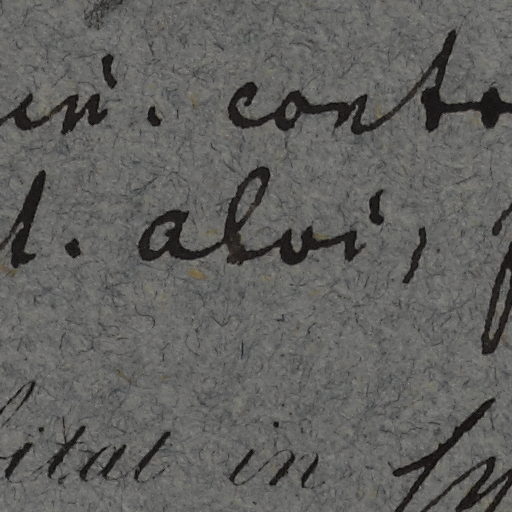 in. conto
t. alvi,
bitat in